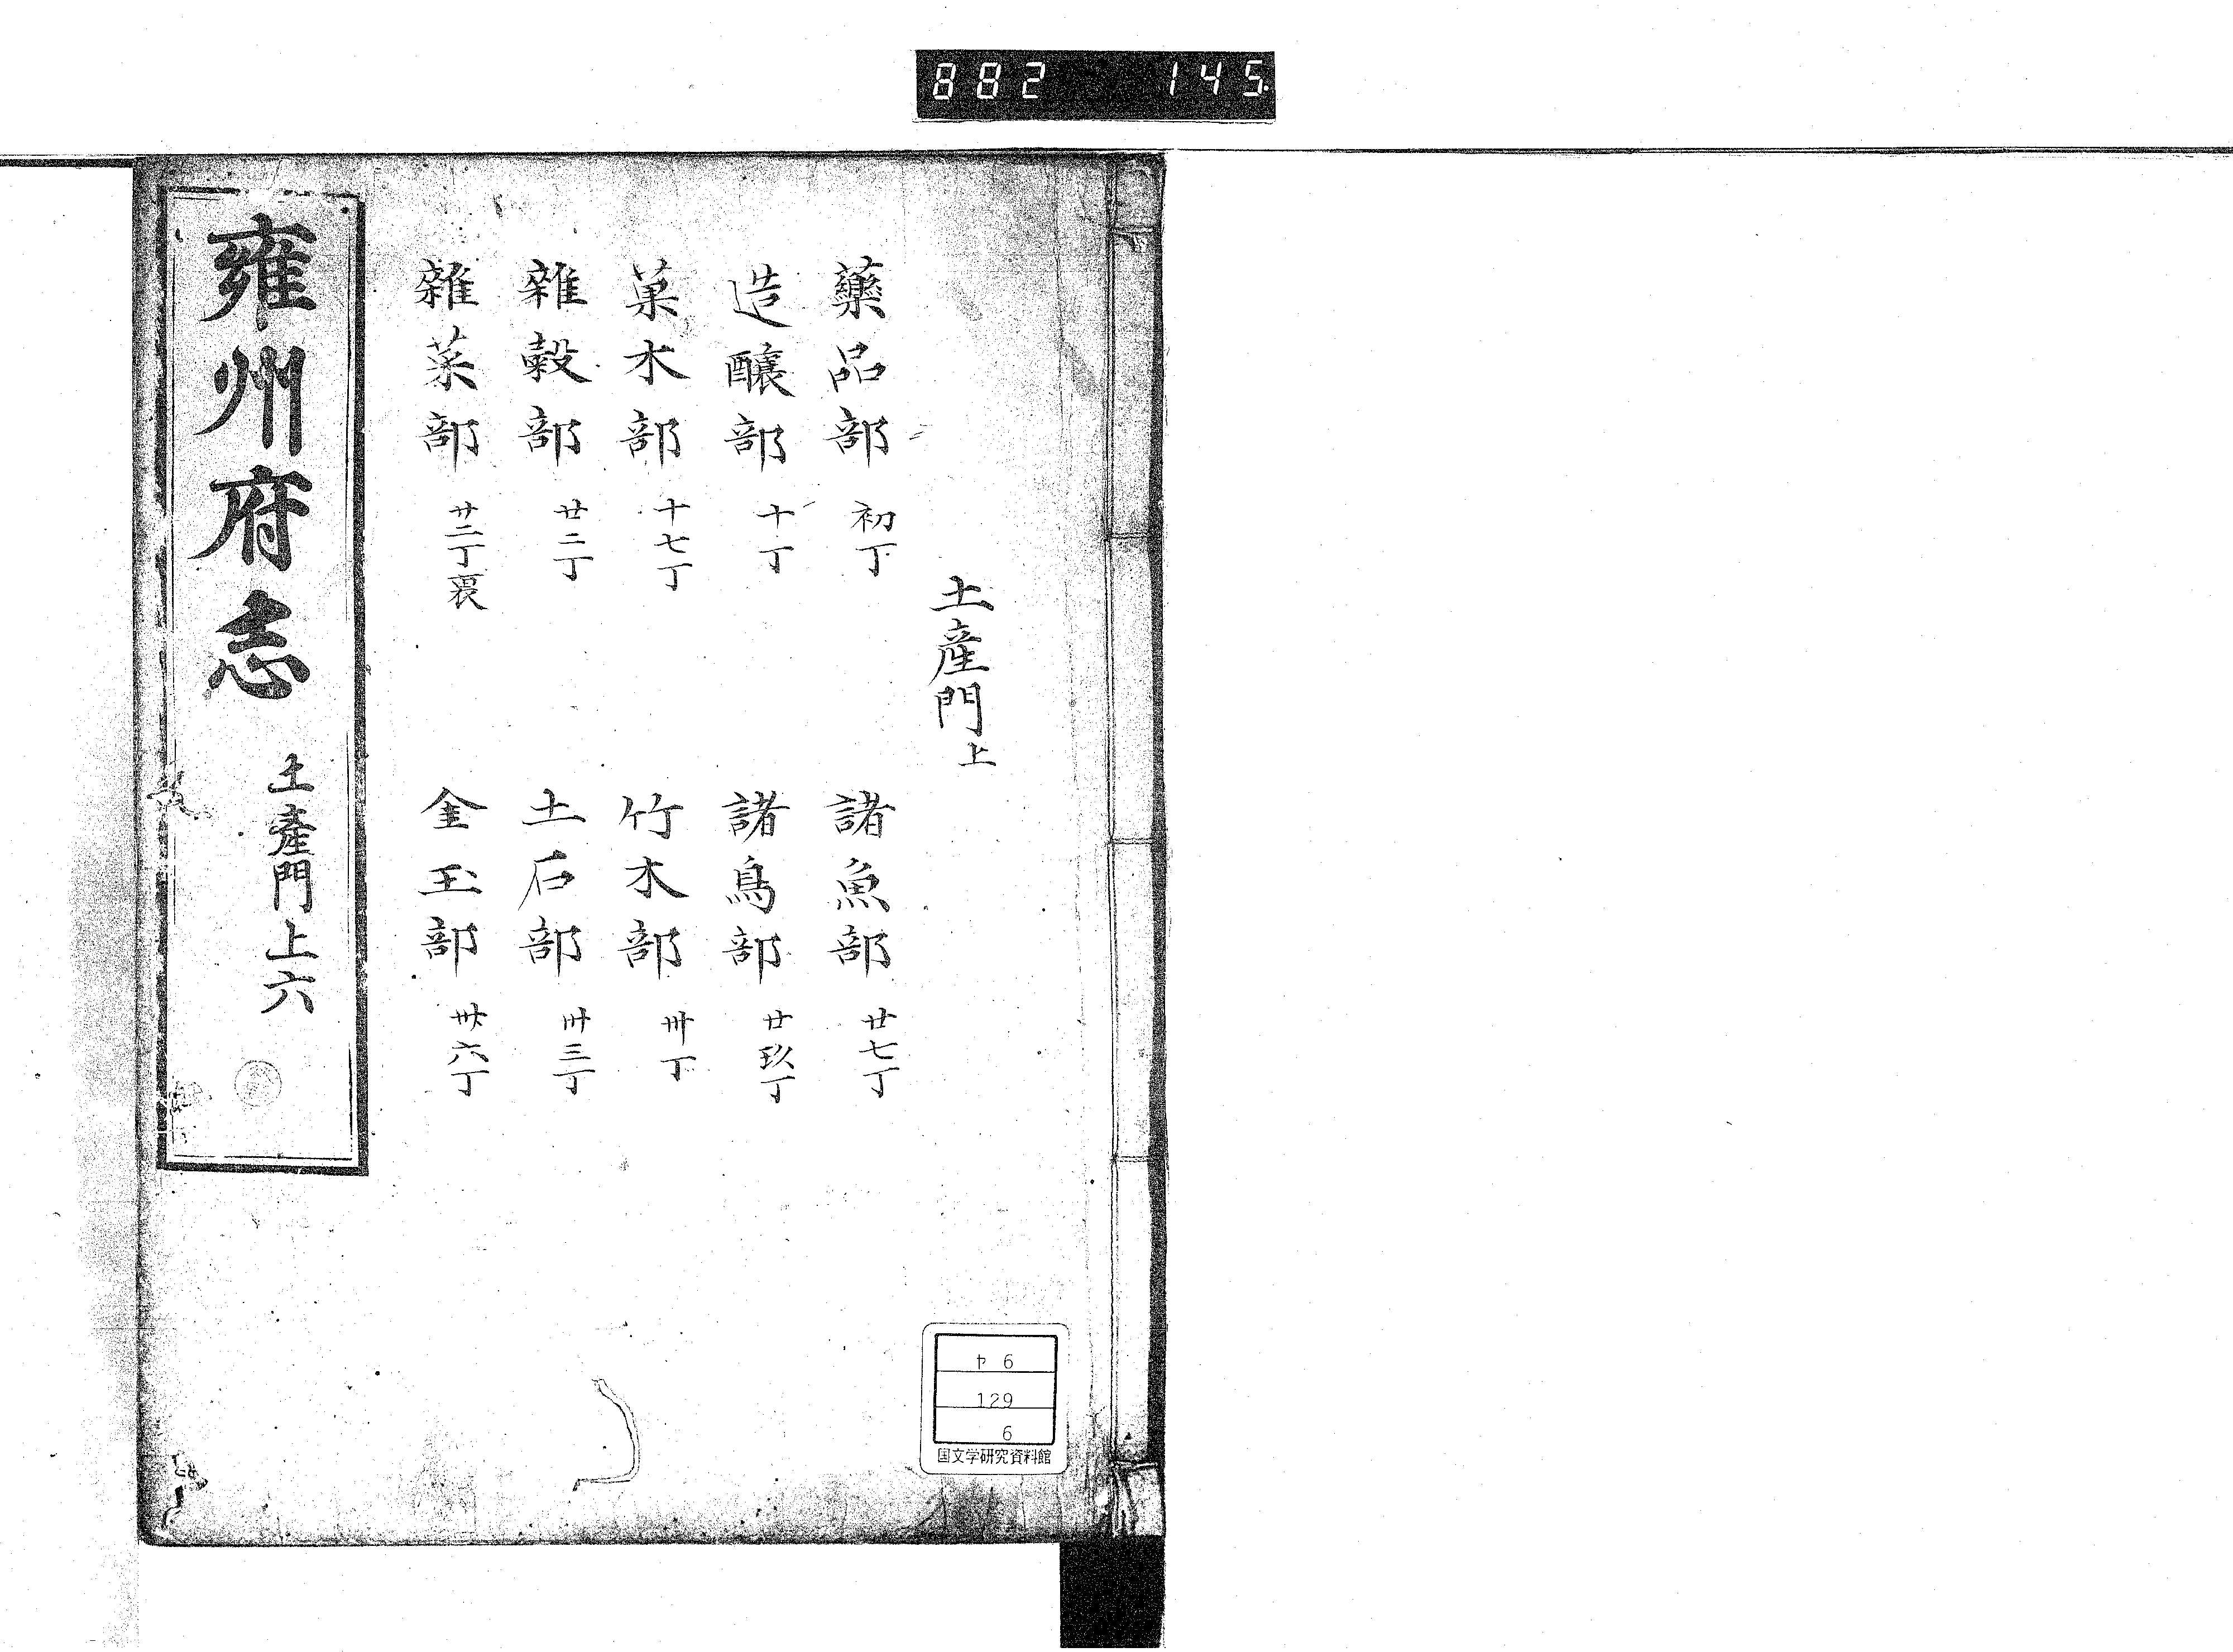 882 145
土産門上
藥品部 初丁
造釀部 十丁
菓木部 十七丁
雜穀部 廿二丁
雜菜部 廿二丁裏
諸魚部 廿七丁
諸鳥部 廿玖丁
竹木部 卅丁
土石部 卅三丁
金玉部 卅六丁
雍州府志 土産門上 六
ヤ6
129
6
国文学研究資料館